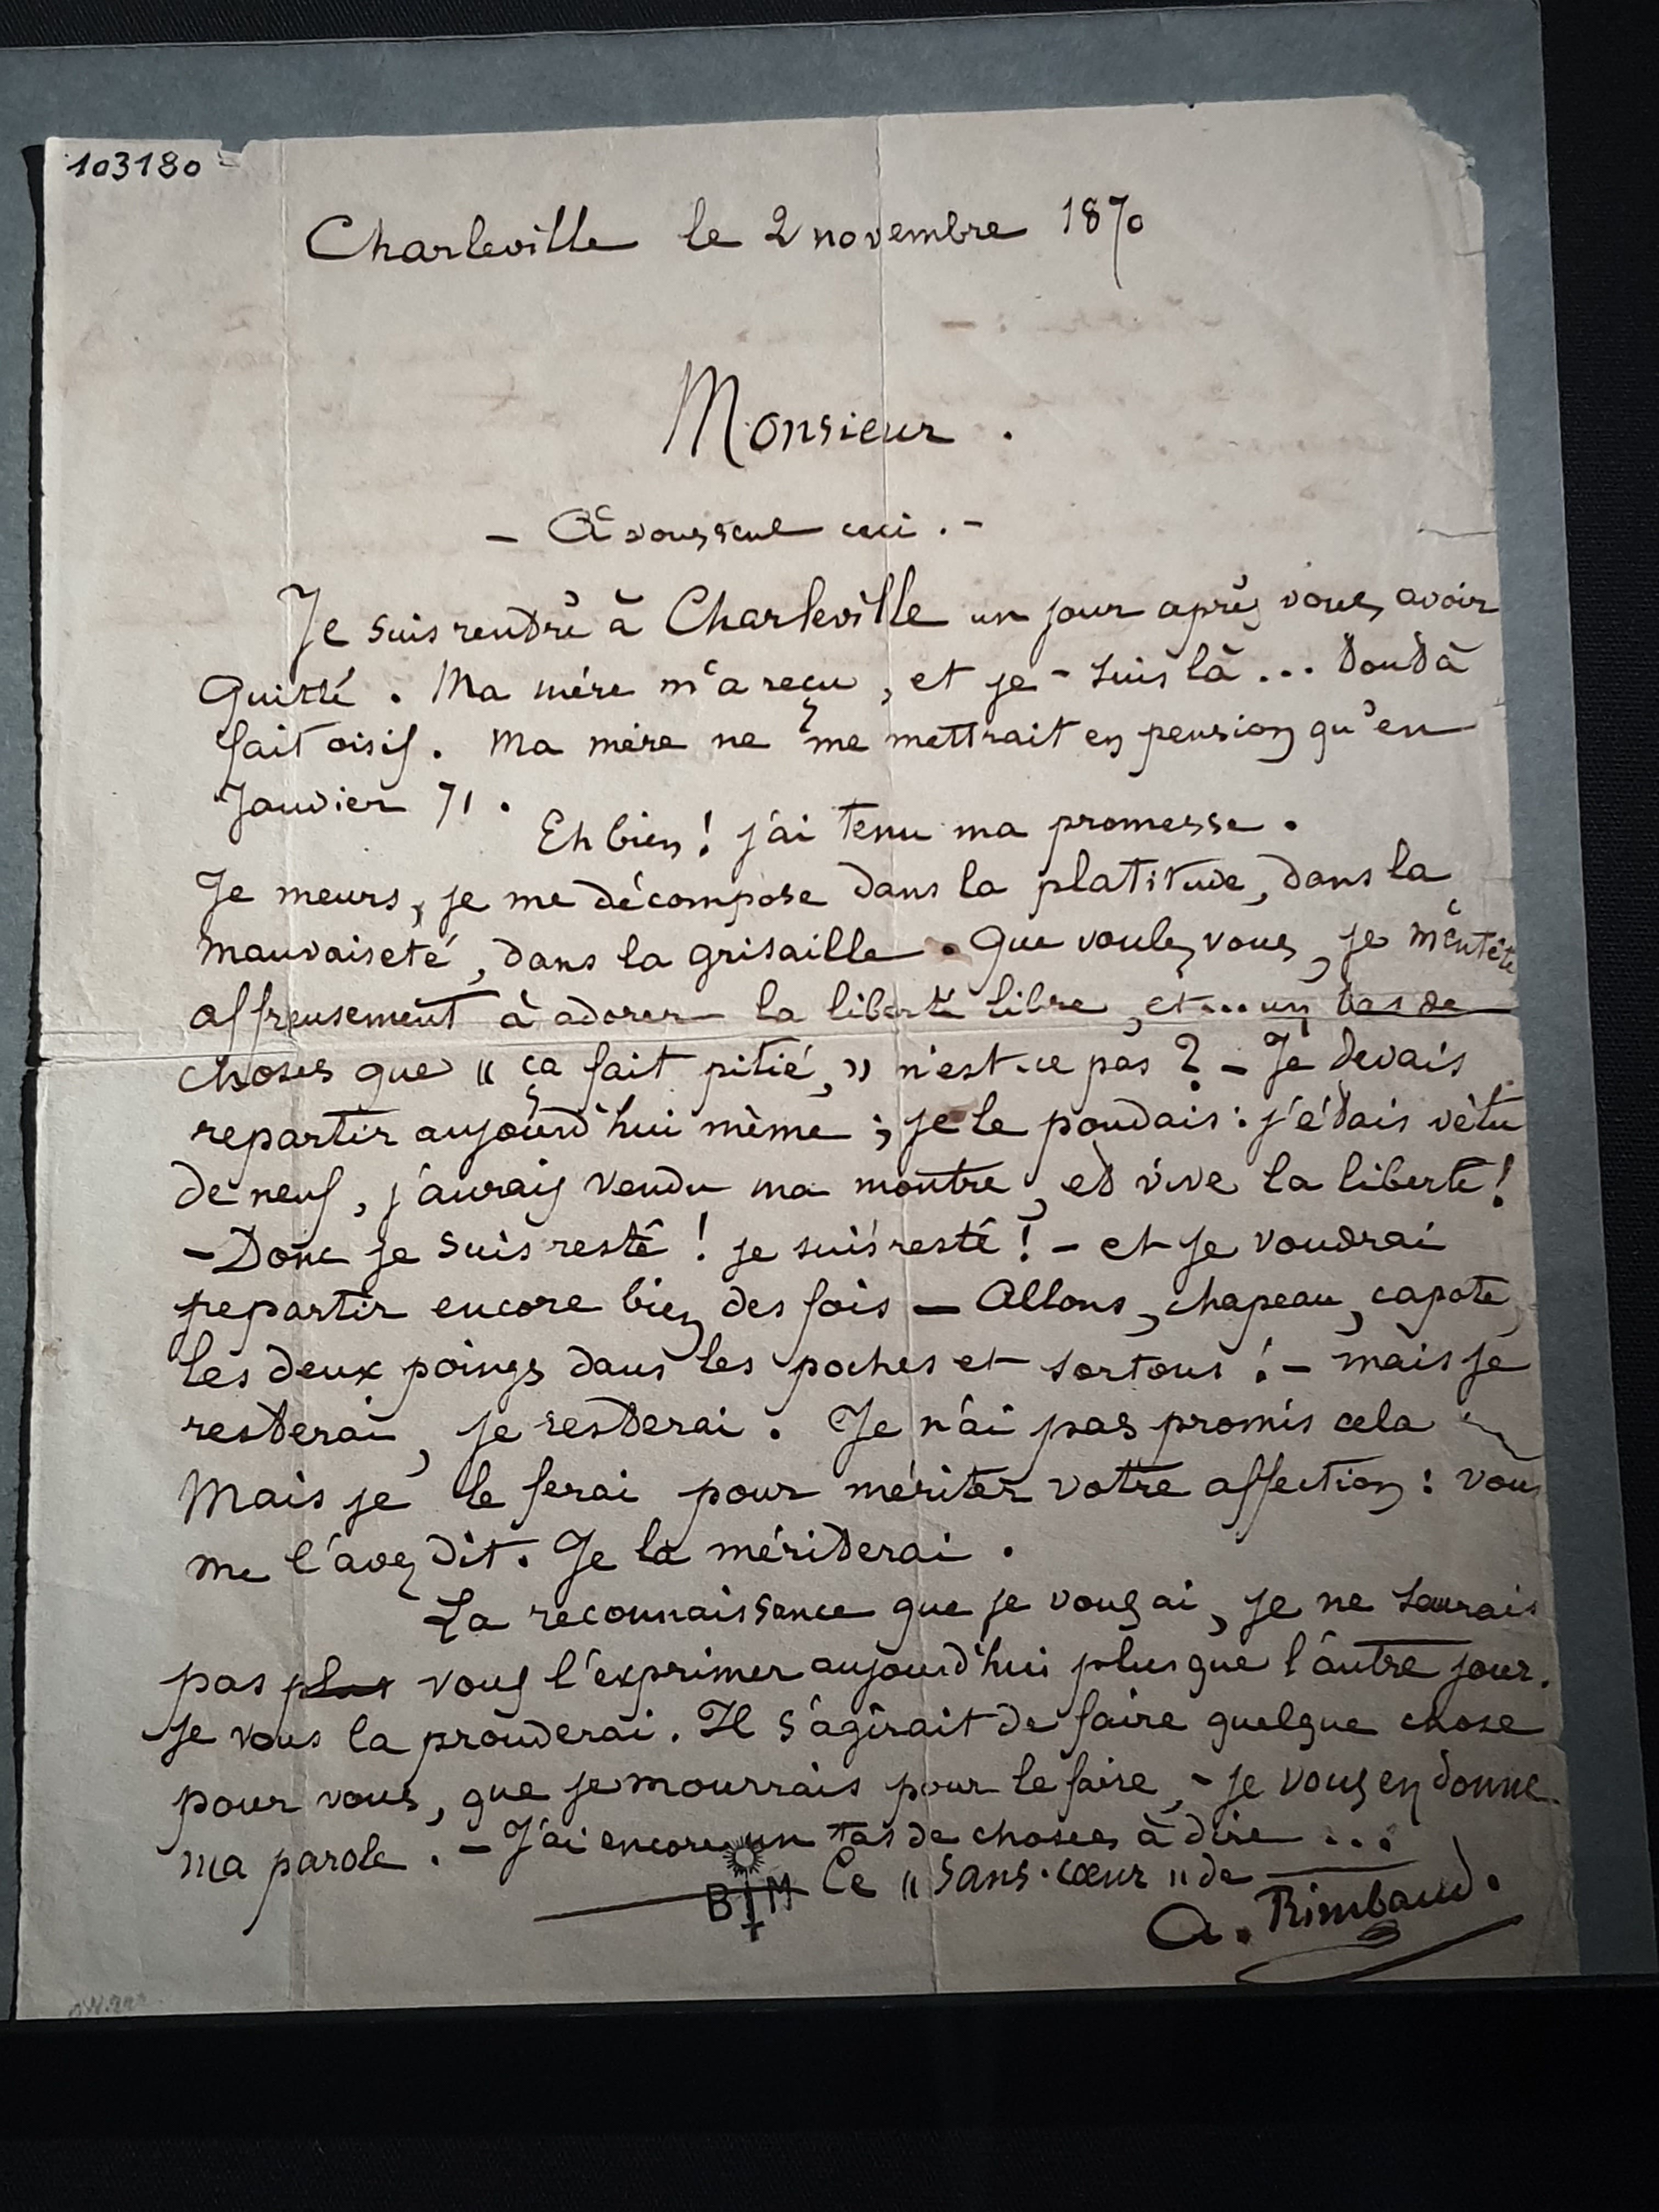 103180
Charleville le 2 novembre 1870
Monsieur.
- A vous seul ceci. -
Je suis rentré à Charleville un jour après vous avoir
quitté. Ma mère m'a reçu, et je - suis là... tout à
fait oisif. Ma mère ne me mettrait en pension qu'en
Janvier 71.
Eh bien! j'ai tenu ma promesse.
Je meurs, je me décompose dans la platitude, dans la
mauvaiseté, dans la grisaille. Que voulez vous, je m'entête
affreusement à adorer la liberté libre, et... un tas de
choses que « ça fait pitié, » n'est-ce pas? - Je devais
repartir aujourd'hui même; je le pouvais: j'étais vêtu
de neuf, j'aurais vendu ma montre, et vive la liberté!
- Donc je suis resté! je suis resté! - et je voudrai
repartir encore bien des fois - Allons, chapeau, capote,
les deux poings dans les poches et sortons! - mais je
resterai, je resterai. Je n'ai pas promis cela
Mais je le ferai pour mériter votre affection: vous
me l'avez dit. Je la mériterai.
La reconnaissance que je vous ai, je ne saurais
pas plus vous l'exprimer aujourd'hui plus que l'autre jour.
Je vous la prouverai. Il s'agirait de faire quelque chose
pour vous, que je mourrais pour le faire, - je vous en donne
ma parole. - J'ai encore un tas de choses à dire...
Ce « sans-cœur » de
BM
A. Rimbaud.